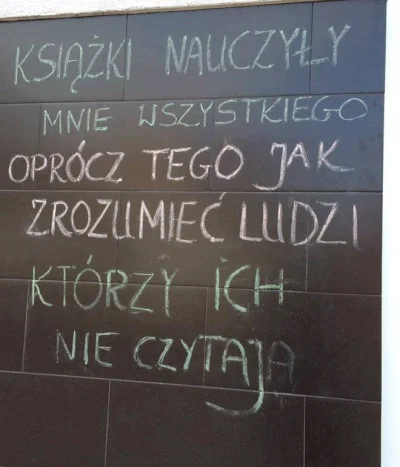 KSIĄŻKI NAUCZYŁY
MNIE WSZYSTKIEGO
OPRÓCZ TEGO JAK
ZROZUMIEĆ LUDZI
KTÓRZY ICH
NIE CZYTAJĄ